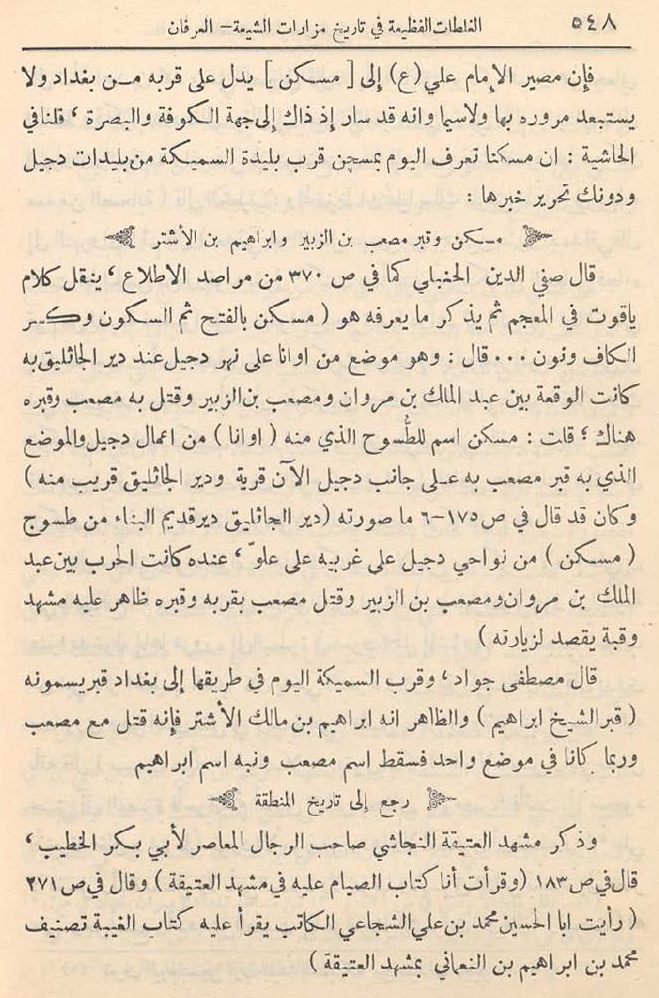 ٥٤٨ الغلطات الفظيعة في تاريخ مزارات الشيعة – العرفان
فإن مصير الإمام علي (ع) إلى [ مسكن ] يدل على قربه مـن بغداد ولا
يستبعد مروره بها ولاسيما وانه قد سار إذ ذاك إلى جهة الكوفة والبصرة ، قلنا في
الحاشية : ان مسكنا تعرف اليوم بمسجن قرب بليدة السميكة من بليدات دجيل
ودونك تحرير خبرها :
مسكن وقبر مصعب بن الزبير وابراهيم بن الأشتر
قال صفي الدين الحنبلي كما في ص ٣٧٠ من مراصد الاطلاع ، ينقل كلام
ياقوت في المعجم ثم يذكر ما يعرفه هو ( مسكن بالفتح ثم السكون وكسر
الكاف ونون ... قال : وهو موضع من اوانا على نهر دجيل عند دير الجاثليق به
كانت الوقعة بين عبد الملك بن مروان ومصعب بن الزبير وقتل به مصعب وقبره
هناك ؛ قلت : مسكن اسم للطُّسوح الذي منه ( اوانا ) من اعمال دجيل والموضع
الذي به قبر مصعب به عـلى جانب دجيل الآن قرية ودير الجاثليق قريب منه )
وكان قد قال في ص ١٧٥–٦ ما صورته ( دير الجاثليق دير قديم البناء من طسوج
( مسكن ) من نواحي دجيل على غربيه على علوّ ، عنده كانت الحرب بين عبد
الملك بن مروان ومصعب بن الزبير وقتل مصعب بقربه وقبره ظاهر عليه مشهد
وقبة يقصد لزيارته )
قال مصطفى جواد ، وقرب السميكة اليوم في طريقها إلى بغداد قبر يسمونه
( قبر الشيخ ابراهيم ) والظاهر انه ابراهيم بن مالك الأشتر فإنه قتل مع مصعب
وربما كانا في موضع واحد فسقط اسم مصعب ونبه اسم ابراهيم
رجع إلى تاريخ المنطقة
وذكر مشهد العتيقة النجاشي صاحب الرجال المعاصر لأبي بكر الخطيب ،
قال في ص ١٨٣ ( وقرأت أنا كتاب الصيام عليه في مشهد العتيقة ) وقال في ص ٢٧١
( رأيت ابا الحسين محمد بن علي الشجاعي الكاتب يقرأ عليه كتاب الغيبة تصنيف
محمد بن ابراهيم بن النعماني بمشهد العتيقة )